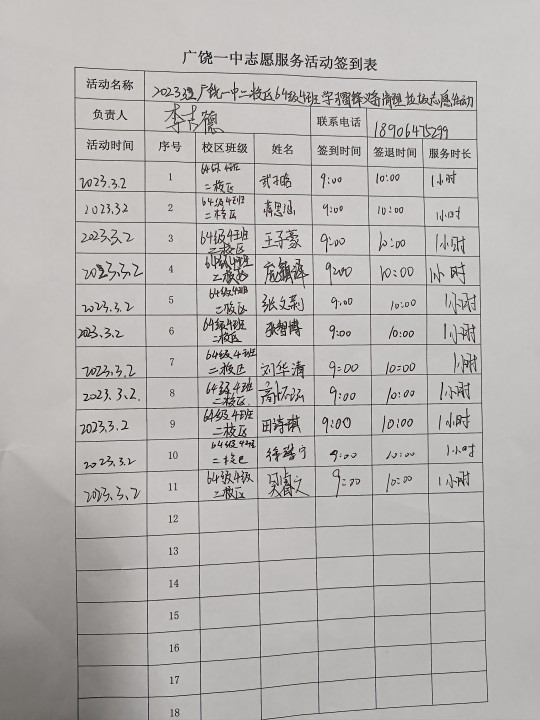 广饶一中志愿服务活动签到表
活动名称 2023 广饶一中二校区64级4班学习雷锋 清理垃圾志愿活动
负责人 李志德 联系电话 18906475299
活动时间 序号 校区班级 姓名 签到时间 签退时间 服务时长
2023.3.2 1 64级4班二校区 9:00 10:00 1小时
2023.3.2 2 64级4班二校区 9:00 10:00 1小时
2023.3.2 3 64级4班二校区 王子蒙 9:00 10:00 1小时
2023.3.2 4 64级4班二校区 9:00 10:00 1小时
2023.3.2 5 64级4班二校区 张文 9:00 10:00 1小时
2023.3.2 6 64级4班二校区 张智博 9:00 10:00 1小时
2023.3.2 7 64级4班二校区 刘华清 9:00 10:00 1小时
2023.3.2. 8 64级4班二校区. 高 9:00 10:00 1小时
2023.3.2 9 64级4班二校区 田诗琪 9:00 10:00 1小时
2023.3.2 10 64级4班二校区 徐 宁 9:00 10:00 1小时
2023.3.2 11 64级4级二校区 吴 文 9:00 10:00 1小时
12
13
14
15
16
17
18